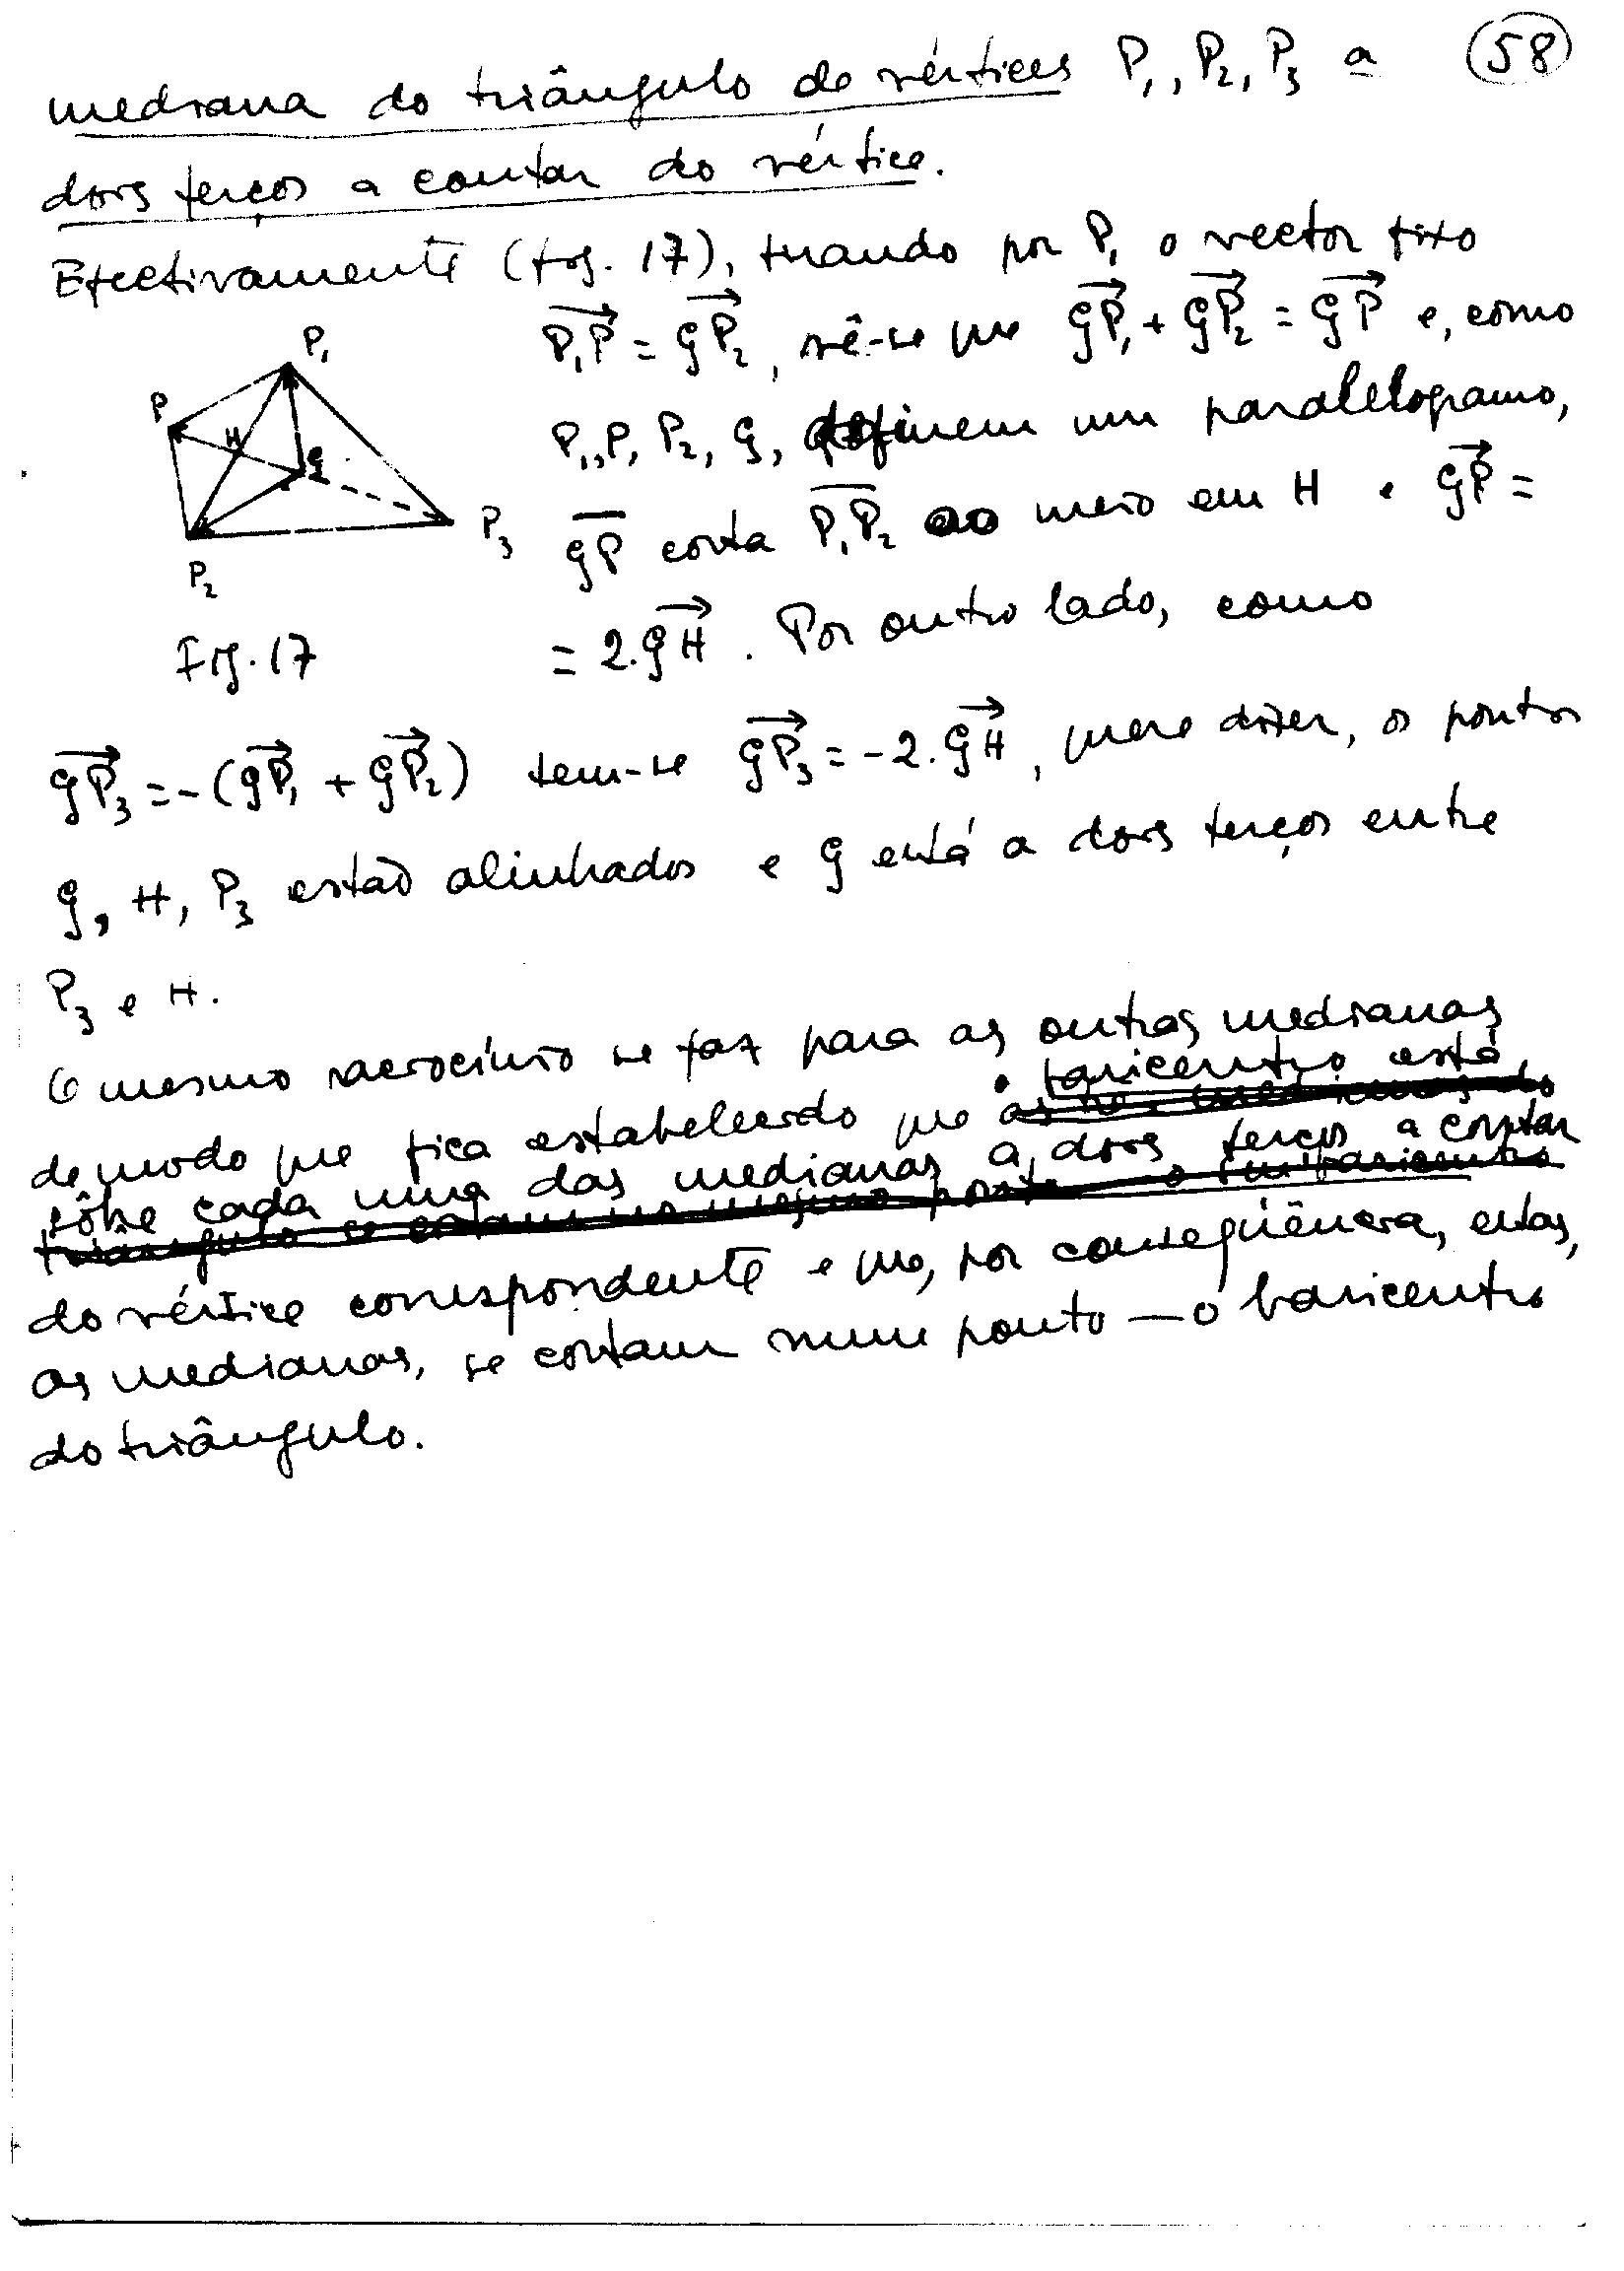 mediana do triângulo de vértices P₁, P₂, P₃ a (58)
dois terços a contar do vértice.
Efectivamente (fig. 17), tirando por P₁ o vector fixo
P₁P⃗ = GP₂⃗, vê-se que GP₁⃗ + GP₂⃗ = GP⃗ e, como
P₁, P, P₂, G, definem um paralelogramo,
G̅P̅ corta P̅₁P̅₂ ao meio em H e GP⃗ =
= 2.GH⃗. Por outro lado, como
P₁
P
H
G
P₃
P₂
Fig. 17
GP₃⃗ = -(GP₁⃗ + GP₂⃗) tem-se GP₃⃗ = -2.GH⃗, quere dizer, os pontos
G, H, P₃ estão alinhados e G está a dois terços entre
P₃ e H.
O mesmo raciocínio se faz para as outras medianas
de modo que fica estabelecido que o baricentro está
sôbre cada uma das medianas a dois terços a contar
do vértice correspondente e que, por conseqüência, estas,
as medianas, se cortam num ponto — o baricentro
do triângulo.